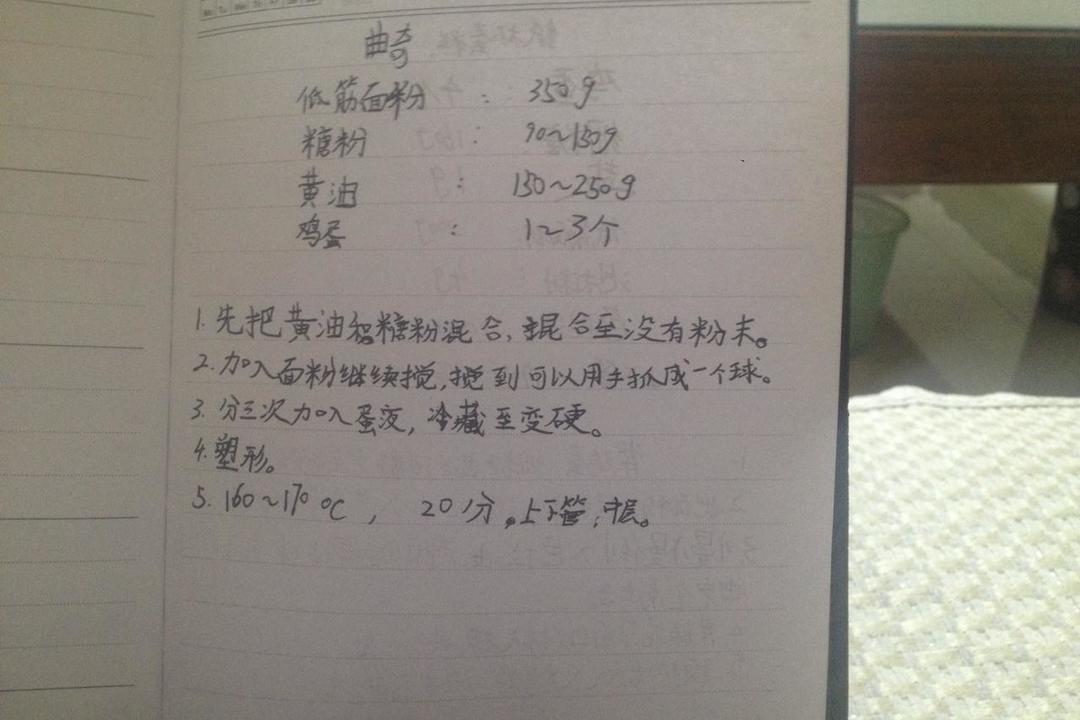 曲奇
低筋面粉 : 350g
糖粉 : 90~150g
黄油 : 150~250g
鸡蛋 : 1~3个
1. 先把黄油和糖粉混合,混合至没有粉末。
2. 加入面粉继续搅,搅到可以用手抓成一个球。
3. 分三次加入蛋液,冷藏至变硬。
4. 塑形。
5. 160~170℃, 20分。上下管,中层。